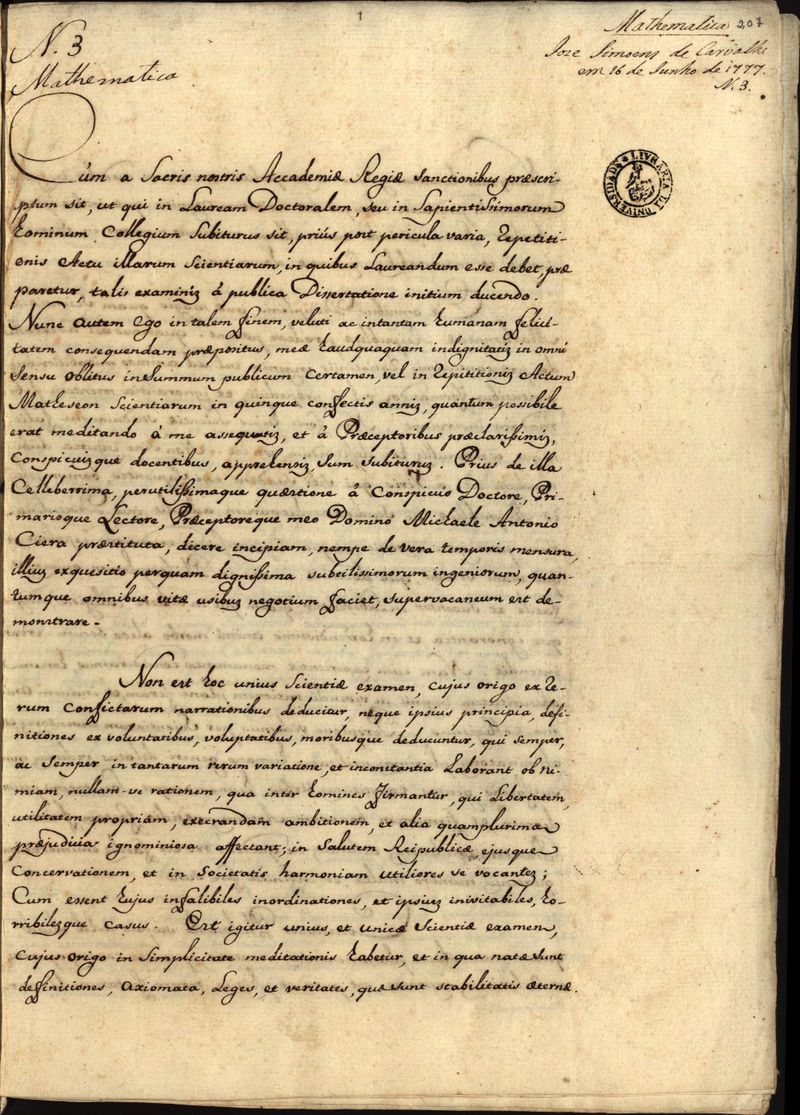 1
N. 3
Mathematica
Mathematica 207
Joze Simoens de Carvalho
em 16 de Junho de 1777.
N. 3.
LIVRARIA DA UNIVERSIDADE
Cùm a Sacris nostris Accademiæ Regiæ Sanctionibus præscri-
ptum sit, ut qui in Lauream Doctoralem, seu in Sapientissimorum
hominum Collegium Subiturus sit, priùs post pericula varia, repetiti-
onis Actu illarum Scientiarum, in quibus Laureandum esse debet, præ
paretur, talis examinis à publica Dissertatione initium ducendo.
Nunc autem Ego in talem finem, veluti ac in tantam humanam felici-
tatem consequendam præpositus, meæ haudquaquam indignitatis in omni
Sensu oblitus in Summum publicum Certamen, vel in repititionis Actum
Matheseon Scientiarum in quinque confectis annis, quantum possibile
erat meditando à me assequutis, et à Præceptoribus præclarissimis,
Conspicuisque docentibus, apprehensis, Sum Subiturus. Prius de illa
Celleberrima, perutilissimaque quæstione à Conspicuo Doctore, Pri-
marioque Lectore, Præceptoreque meo Domino Michaele Antonio
Ciera præstituta, dicere incipiam, nempe de vera temporis mensura,
illius exquesitio perquam dignissima subtilissimorum ingeniorum, quan-
tumque omnibus vitæ usibus negotium faciet, supervacaneum est de-
monstrare.
Non est hoc unius Scientiæ examen, cujus origo ex re-
rum Confictarum narrationibus deducitur, neque ipsius principia, defi-
nitiones ex voluntatibus, voluptatibus, moribusque deducuntur, qui semper,
ac Semper in tantarum rerum variatione, et inconstantia Laborant ob ni-
miam, nullam-ve rationem, qua inter homines firmantur, qui Libertatem,
utilitatem propriam, execrandam ambitionem, et alia quamplurima
præjudicia ignominiosa affectant; in Salutem Reipublicæ, ejusque
Concervationem, et in Societatis harmoniam utiliores se vocantes;
Cum essent hujus infalibiles inordinationes, et ipsius inivitabiles, ho-
rribilesque casus. Est igitur unius, et unicæ Scientiæ examen,
Cujus origo in Simplicitate meditationis habetur, et in qua natæ sunt
definitiones, axiomata, Leges, et veritates, quæ sunt stabilitatis æternæ.